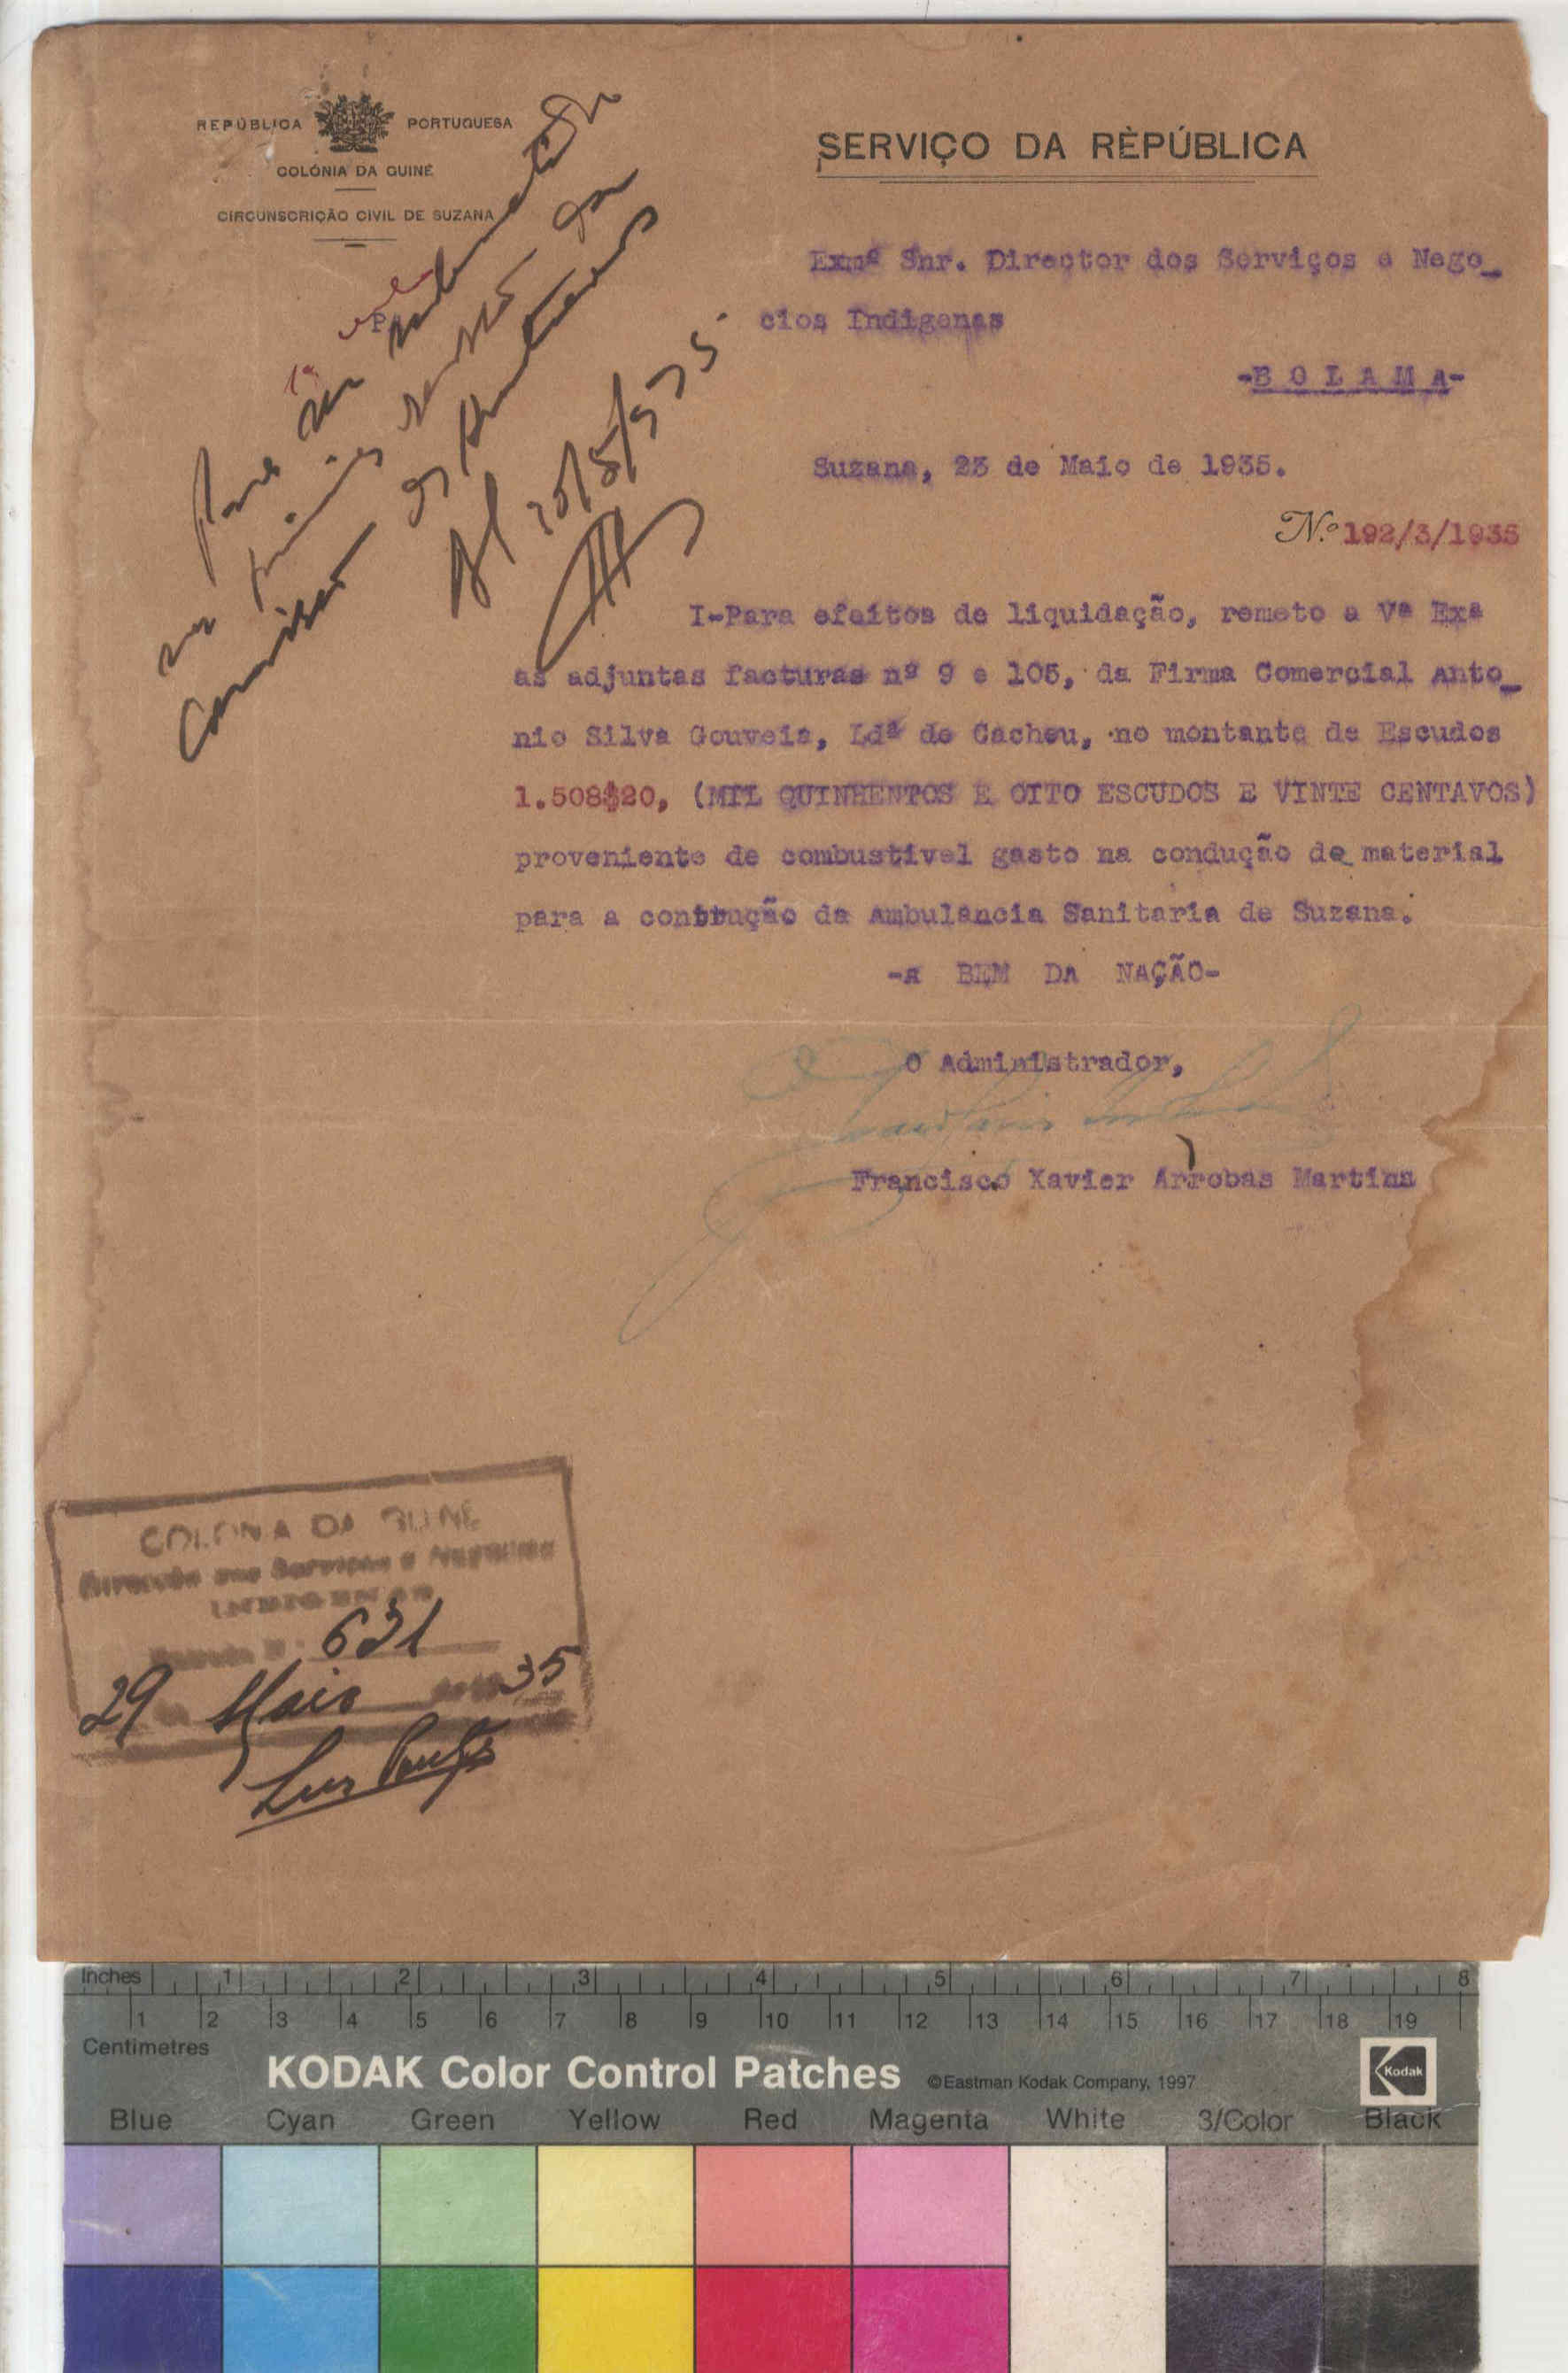 REPÚBLICA PORTUGUESA
COLÓNIA DA GUINÉ
CIRCUNSCRIÇÃO CIVIL DE SUZANA
SERVIÇO DA RÈPÚBLICA
Exmº Snr. Director dos Serviços e Nego_
cios Indigenas
-B O L A M A-
Suzana, 23 de Maio de 1935.
N.º 192/3/1935
Para ser submetido
na primeira
Comissão
I-Para efeitos de liquidação, remeto a Vª Exª
as adjuntas facturas nº 9 e 105, da Firma Comercial Anto_
nio Silva Gouveia, Ldª de Cacheu, no montante de Escudos
1.508$20, (MIL QUINHENTOS E OITO ESCUDOS E VINTE CENTAVOS)
proveniente de combustivel gasto na condução de material
para a contrução da Ambulancia Sanitaria de Suzana.
-A BEM DA NAÇÃO-
O Administrador,
Francisco Xavier Arrobas Martins
COLONIA DA GUINE
Direcção dos Serviços e Negocios
INDIGENAS
Entrada Nº 631
29 Maio de 1935
Inches 1 2 3 4 5 6 7 8
1 2 3 4 5 6 7 8 9 10 11 12 13 14 15 16 17 18 19
Centimetres
KODAK Color Control Patches ©Eastman Kodak Company, 1997 Kodak
Blue Cyan Green Yellow Red Magenta White 3/Color Black